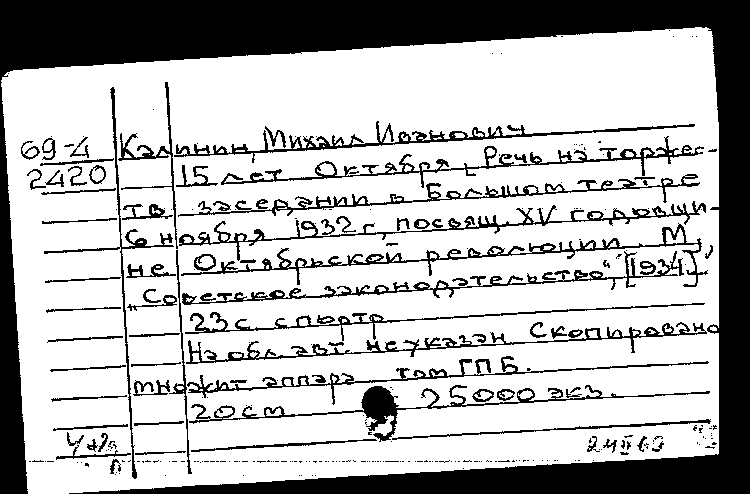 69-4 Калинин, Михаил Иванович
2420 15 лет Октября [Речь на торжес-
тв. заседании в Большом театре
6 ноября 1932 г., посвящ. XV годовщи-
не Октябрьской революции. М.,
"Советское законодательство", [1934]
23 с. с портр.
На обл. авт. не указан. Скопировано
множит. аппара том ГПБ.
20 см. 25000 экз.
24 II 69